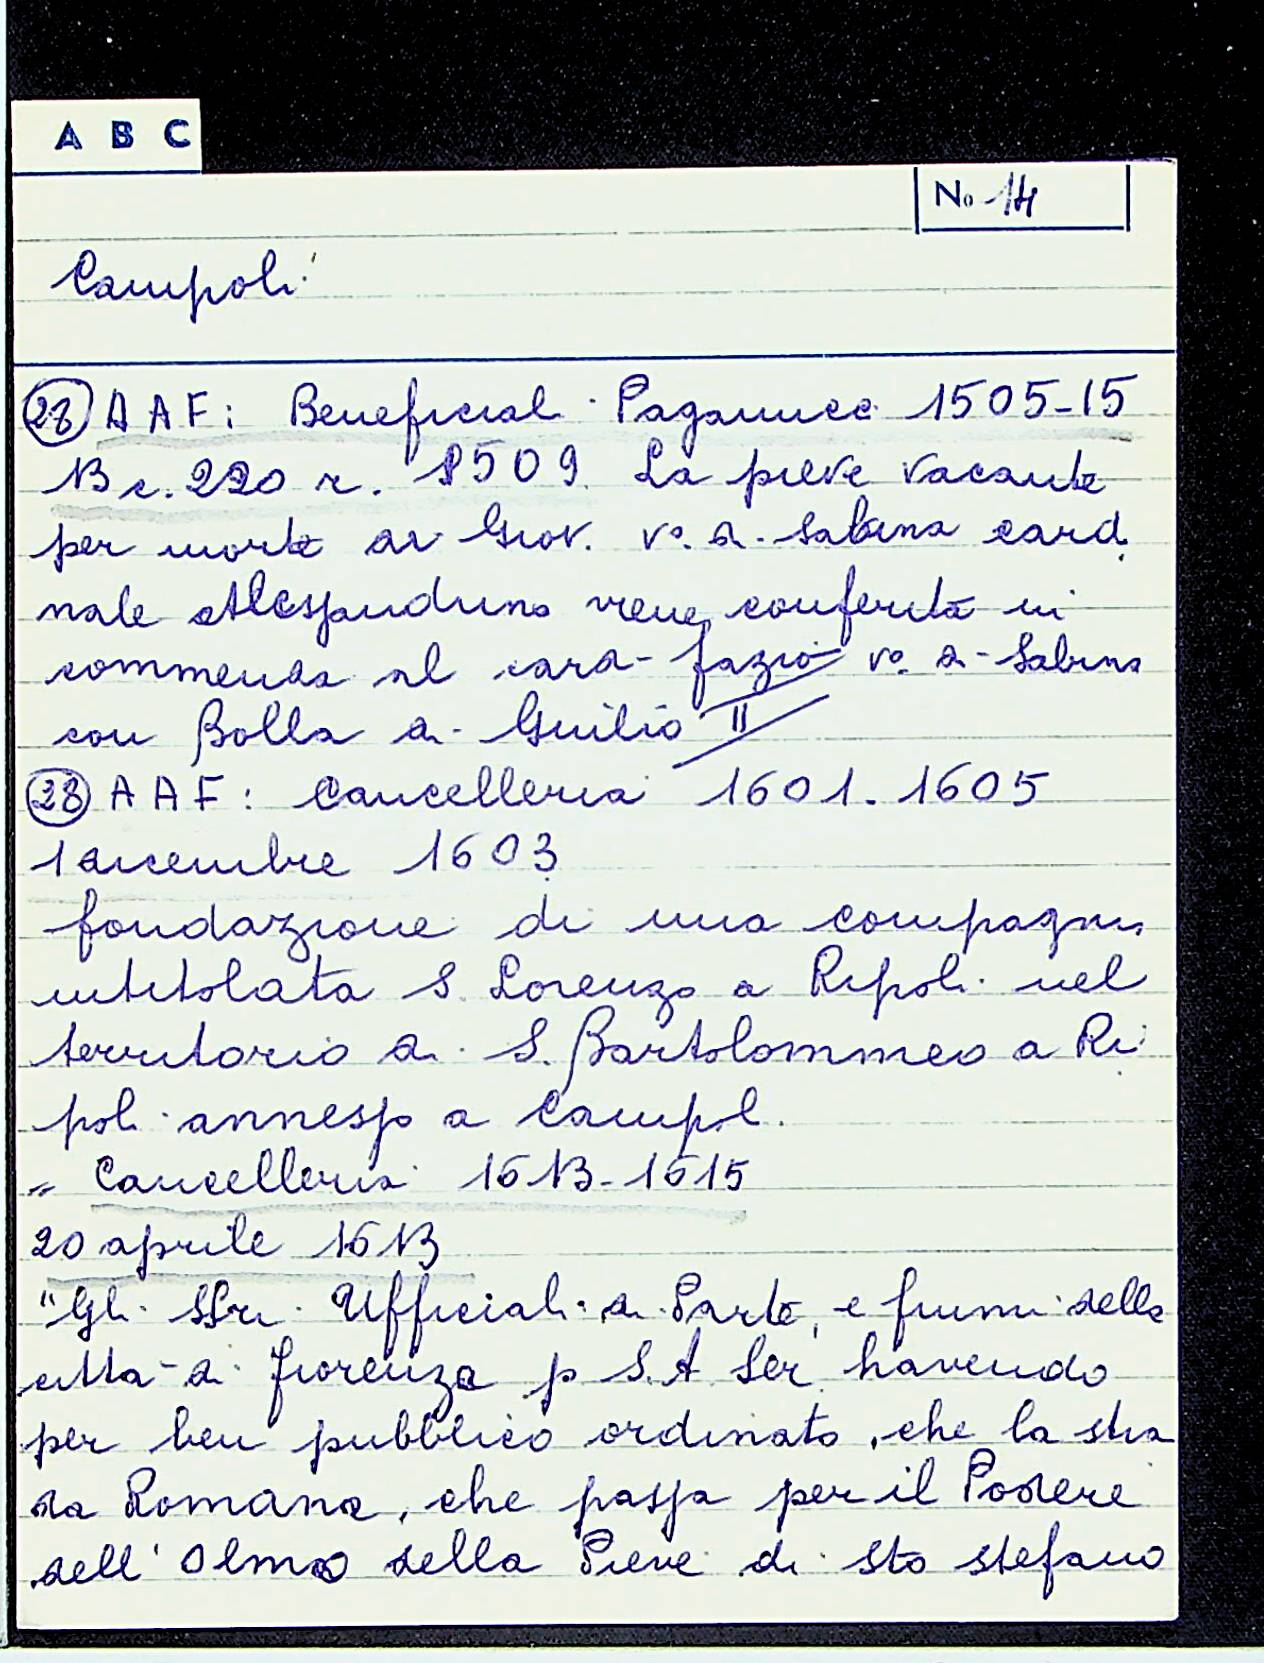 A B C
No 14
Campoli
28 AAF: Beneficiali Paganucci 1505-15
13 c. 220 r. 1509. La pieve vacante
per morte di Giov. vo. di Sabina card.
nale Alespandrino viene conferita in
commenda al card. fazio vo. di Sabina
con Bolla di Guilio II
28 AAF: Cancelleria 1601. 1605
1 dicembre 1603
fondazione di una compagnia
intitolata S. Lorenzo a Ripoli nel
territorio di S. Bartolommeo a Ri
poli annesso a Campoli.
" Cancelleria 1613-1615
20 aprile 1613
"Gli SSri Ufficiali di Parte, e fiumi della
citta di fiorenza p S.A Ser. havendo
per ben pubblico ordinato, che la stra
da Romana, che passa per il Podere
dell'Olmo della Pieve di Sto Stefano